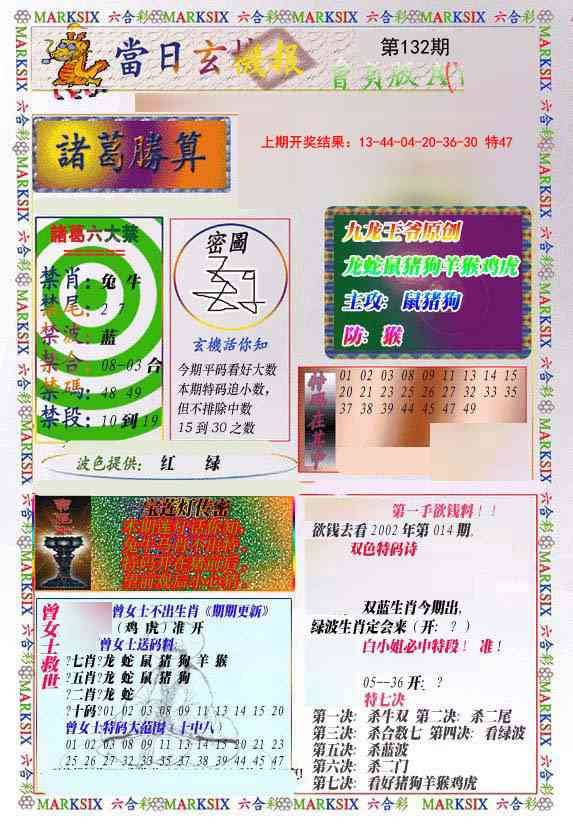 MARKSIX 六合彩 MARKSIX 六合彩 MARKSIX 六合彩 MARKSIX 六合彩 MARKSIX
當日玄機报
第132期
諸葛勝算
上期开奖结果：13-44-04-20-36-30 特47
諸葛六大禁
禁肖：兔 牛
禁尾：2 7
禁波：蓝
禁合：08-03 合
禁碼：48 49
禁段：10 到 19
密圖
玄機活你知
今期平码看好大数
本期特码追小数，
但不排除中数
15 到 30 之数
九龙王爷原创
龙蛇鼠猪狗羊猴鸡虎
主攻：鼠猪狗
防：猴
特码在其中
01 02 03 08 09 11 13 14 15
20 21 23 25 26 27 32 33 35
37 38 39 44 45 47 49
波色提供： 红 绿
宝莲灯传密
第一手欲钱料！！
欲钱去看 2002 年第 014 期.
双色特码诗
双蓝生肖今期出,
绿波生肖定会来（开: ？）
白小姐必中特段！ 准！
05--36 开: ？
特七决
第一决: 杀牛双 第二决: 杀二尾
第三决: 杀合数七 第四决: 看绿波
第五决: 杀蓝波
第六决: 杀二门
第七决: 看好猪狗羊猴鸡虎
曾女士救世
曾女士不出生肖《期期更新》
（鸡 虎）准 开
曾女士送码料:
?七肖?龙 蛇 鼠 猪 狗 羊 猴
?五肖?龙 蛇 鼠 猪 狗
?二肖?龙 蛇
?十码?01 02 03 08 09 11 13 14 15 20
曾女士特码大范围（十中八）
01 02 03 08 09 11 13 14 15 20 21 23
25 26 27 32 33 35 37 38 39 44 45 47
MARKSIX 六合彩 MARKSIX 六合彩 MARKSIX 六合彩 MARKSIX 六合彩 MARKSIX